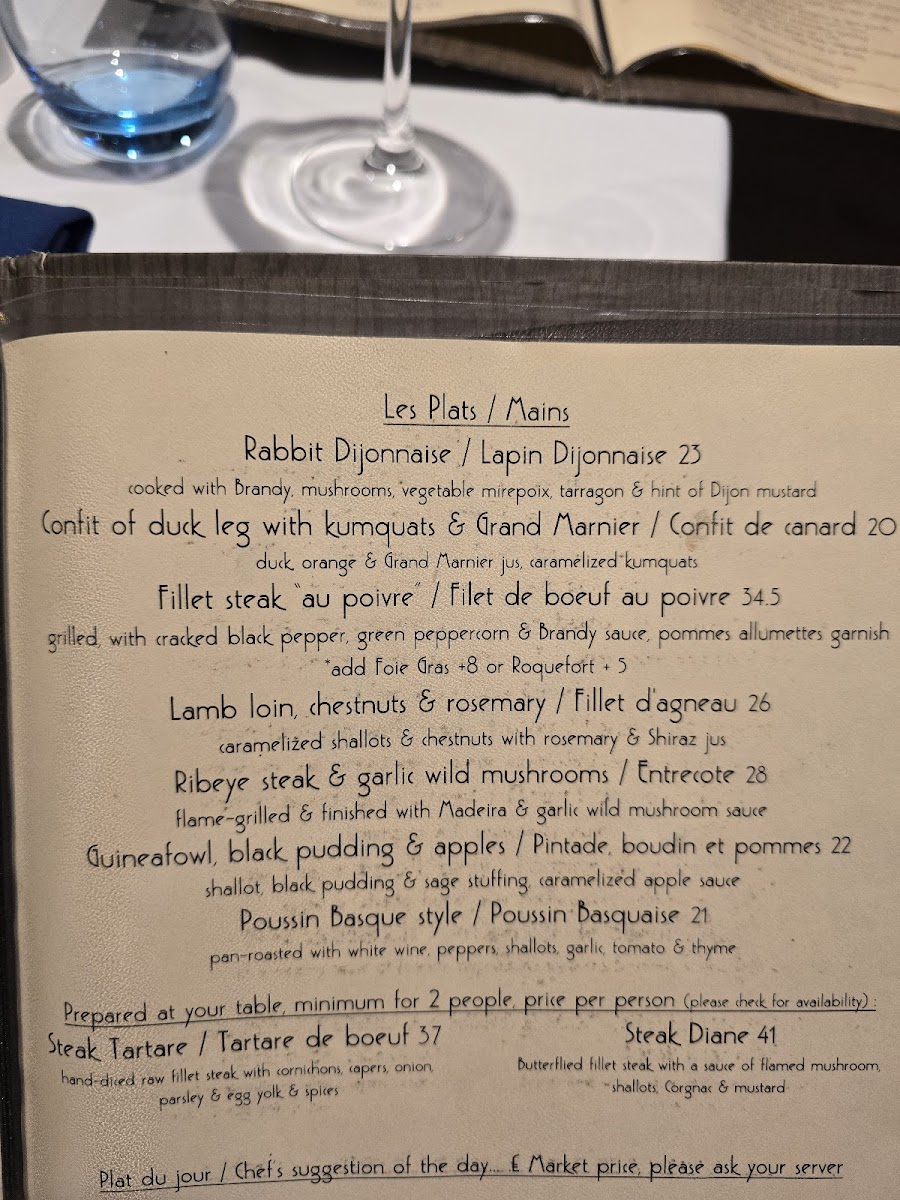 Les Plats / Mains
Rabbit Dijonnaise / Lapin Dijonnaise 23
cooked with Brandy, mushrooms, vegetable mirepoix, tarragon & hint of Dijon mustard
Confit of duck leg with kumquats & Grand Marnier / Confit de canard 20
duck, orange & Grand Marnier jus, caramelized kumquats
Fillet steak "au poivre" / Filet de boeuf au poivre 34.5
grilled, with cracked black pepper, green peppercorn & Brandy sauce, pommes allumettes garnish
*add Foie Gras +8 or Roquefort + 5
Lamb loin, chestnuts & rosemary / Fillet d'agneau 26
caramelized shallots & chestnuts with rosemary & Shiraz jus
Ribeye steak & garlic wild mushrooms / Entrecote 28
flame-grilled & finished with Madeira & garlic wild mushroom sauce
Guineafowl, black pudding & apples / Pintade, boudin et pommes 22
shallot, black pudding & sage stuffing, caramelized apple sauce
Poussin Basque style / Poussin Basquaise 21
pan-roasted with white wine, peppers, shallots, garlic, tomato & thyme
Prepared at your table, minimum for 2 people, price per person (please check for availability) :
Steak Tartare / Tartare de boeuf 37
hand-diced raw fillet steak with cornichons, capers, onion,
parsley & egg yolk & spices
Steak Diane 41
Butterflied fillet steak with a sauce of flamed mushroom,
shallots, Corgnac & mustard
Plat du jour / Chef's suggestion of the day... £ Market price, please ask your server